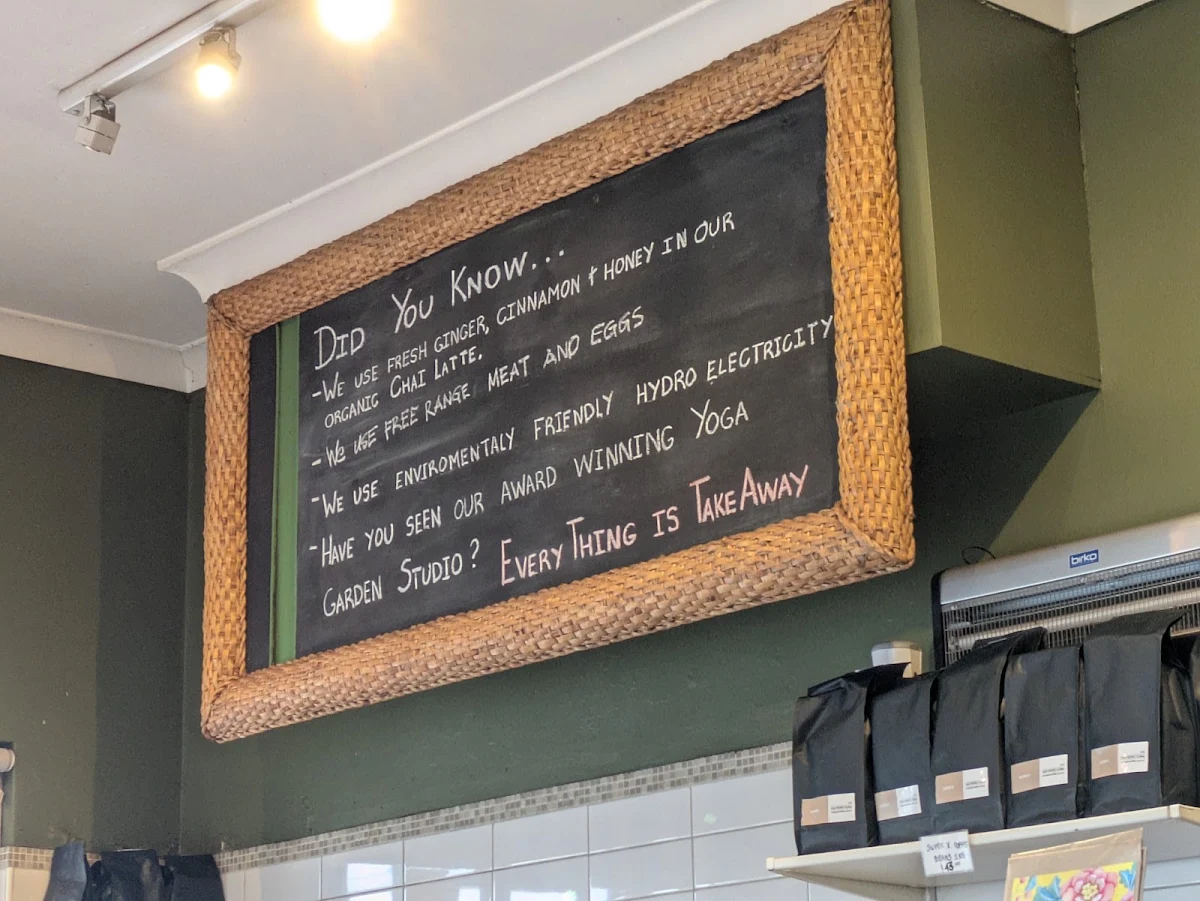 DID YOU KNOW...
- WE USE FRESH GINGER, CINNAMON & HONEY IN OUR
ORGANIC CHAI LATTE.
- WE USE FREE RANGE MEAT AND EGGS
- WE USE ENVIROMENTALY FRIENDLY HYDRO ELECTRICITY
- HAVE YOU SEEN OUR AWARD WINNING YOGA
GARDEN STUDIO? EVERYTHING IS TAKEAWAY
birko